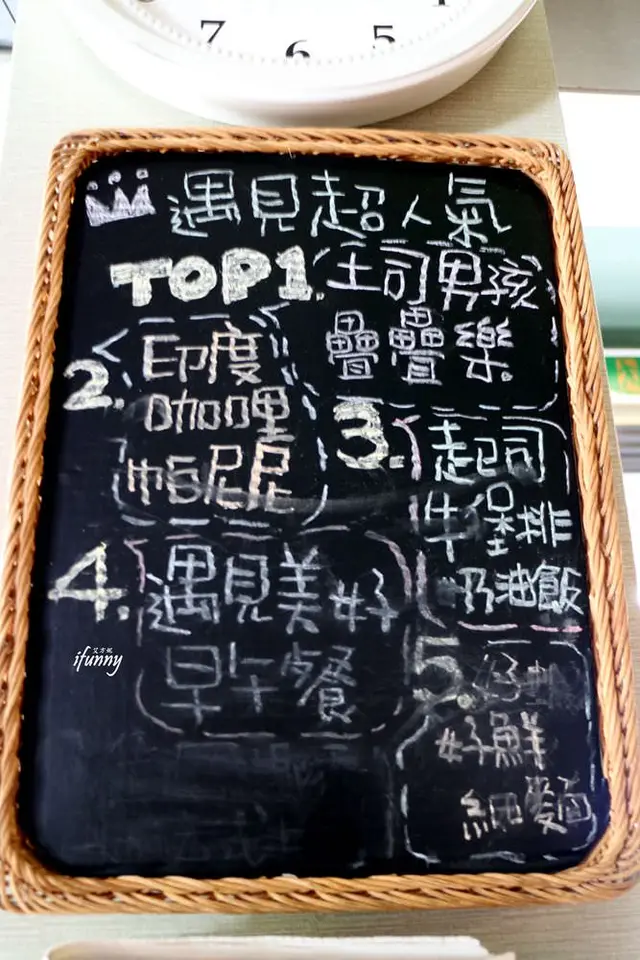 7 6 5
遇見超人氣
TOP1.
土司男孩
疊疊樂
2.
印度
咖哩
帕尼尼
3.
起司
牛堡排
奶油飯
4.
遇見美好
早午餐
艾方妮
ifunny
5.
好鮮
細麵